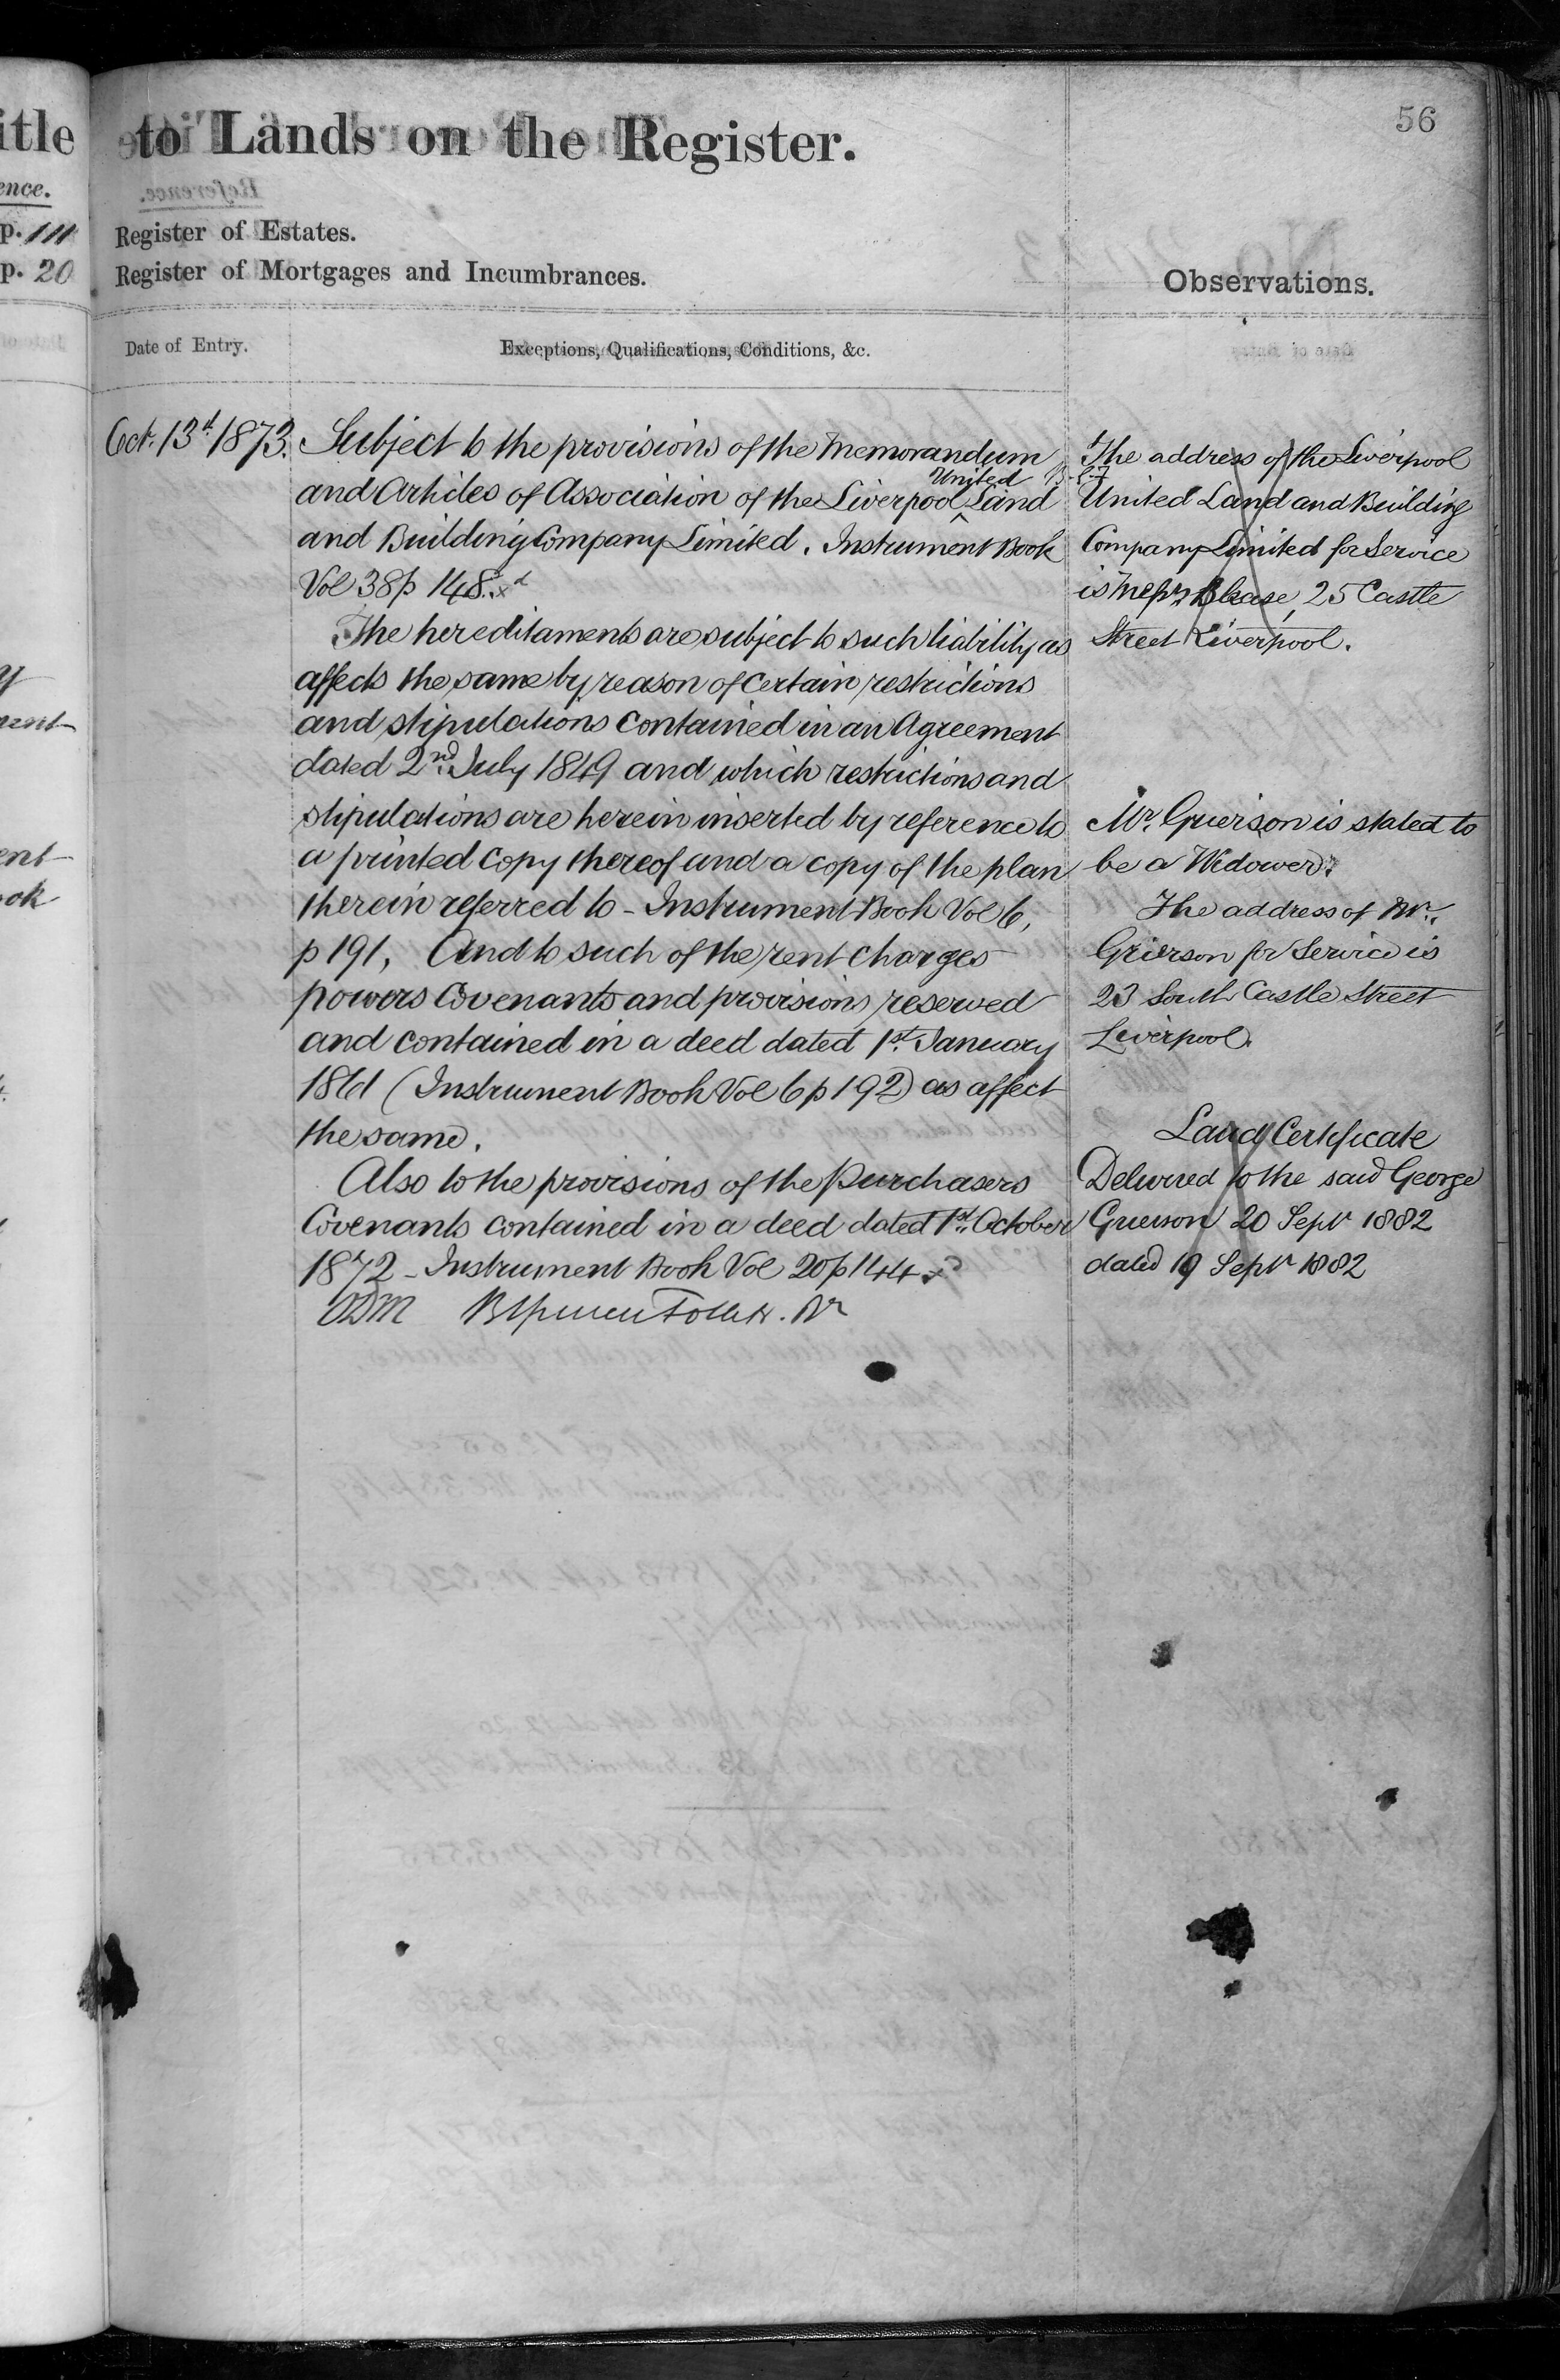 56
itle to Lands on the Register.
ence.
p. 111 Register of Estates.
p. 20 Register of Mortgages and Incumbrances.
Observations.
Date of Entry.
Exceptions, Qualifications, Conditions, &c.
Oct. 13th 1873.
Subject to the provisions of the Memorandum
and Articles of Association of the Liverpool ^United Land
and Building Company Limited. Instrument Book
Vol 38 p 148.
The hereditaments are subject to such liability as
affects the same by reason of certain restrictions
and stipulations contained in an Agreement
dated 2nd July 1849 and which restrictions and
stipulations are herein inserted by reference to
a printed copy thereof and a copy of the plan
therein referred to - Instrument Book Vol 6,
p 191, And to such of the rent charges
powers Covenants and provisions reserved
and contained in a deed dated 1st January
1861 (Instrument Book Vol 6 p 192) as affect
the same.
Also to the provisions of the Purchasers
Covenants contained in a deed dated 1st October
1872 - Instrument Book Vol 20 p 144
The address of the Liverpool
United Land and Building
Company Limited for Service
is Messrs Blease, 25 Castle
Street Liverpool.
Mr. Grierson is stated to
be a Widower.
The address of Mr.
Grierson for Service is
23 South Castle Street
Liverpool.
Land Certificate
Delivered to the said George
Grierson 20 Sepr 1882
dated 19 Sepr 1882